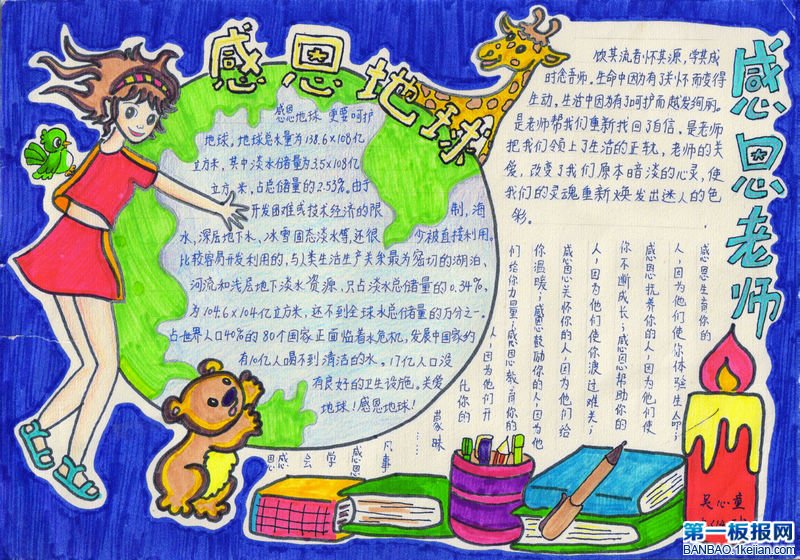 感恩地球
感恩地球 更要呵护
地球,地球总水量为138.6×108亿
立方米,其中淡水储量为3.5×108亿
立方米,占总储量的2.53%。由于
开发困难或技术经济的限制,海
水,深层地下水、冰雪固态淡水等,还很少被直接利用。
比较容易开发利用的,与人类生活生产关系最为密切的湖泊、
河流和浅层地下淡水资源,只占淡水总储量的0.34%,
为104.6×104亿立方米,还不到全球水总储量的万分之一。
占世界人口40%的80个国家正面临着水危机,发展中国家约
有10亿人喝不到清洁的水。17亿人口没
有良好的卫生设施。关爱
地球!感恩地球!
感恩老师
饮其流者怀其源,学其成
时念吾师。生命中因为有了关怀而变得
生动,生活中因为有了呵护而越发绚丽。
是老师帮我们重新找回了自信,是老师
把我们领上了生活的正轨,老师的关
爱,改变了我们原本暗淡的心灵,使
我们的灵魂重新焕发出迷人的色
彩。
感恩生育你的
人,因为他们使你体验生命;
感恩抚养你的人,因为他们使
你不断成长;感恩帮助你的
人,因为他们使你渡过难关;
感恩关怀你的人,因为他们给
你温暖;感恩鼓励你的人,因为他
们给你力量;感恩教育你的
人,因为他们开
化你的
蒙昧
……
凡事
感恩
学
会
感
恩
吴心童
第一板报网
BANBAO.1kejian.com